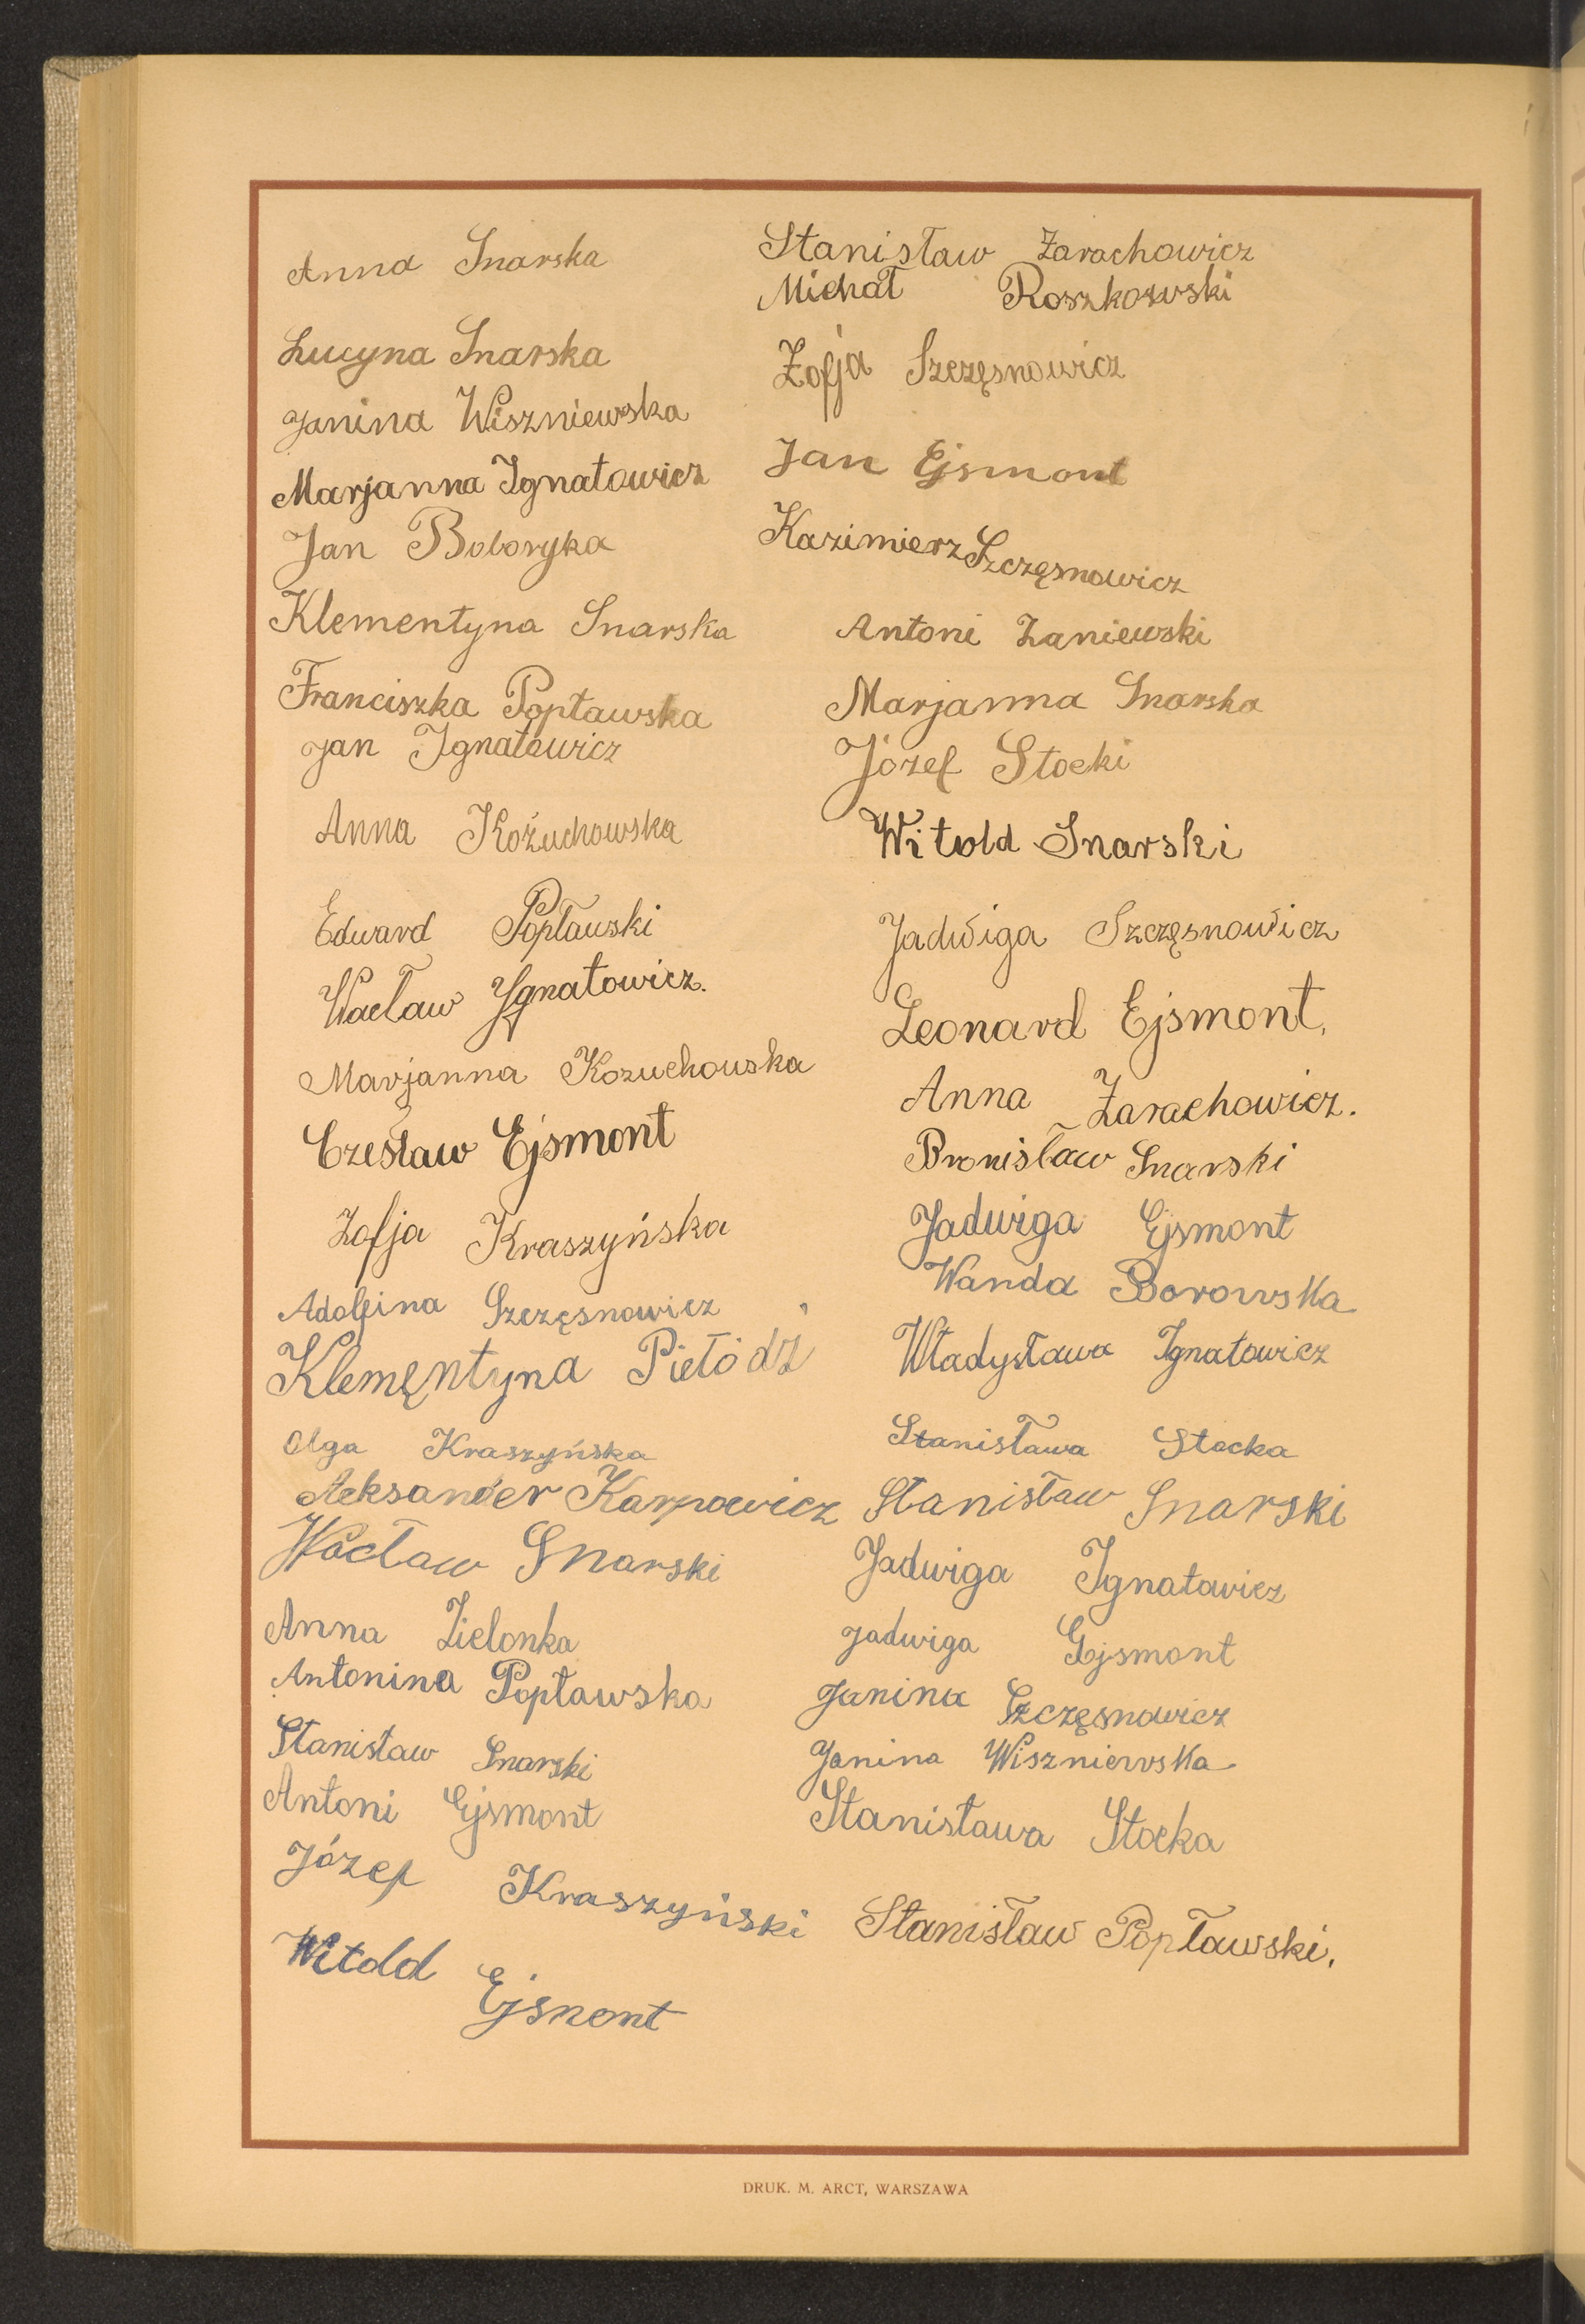 Anna Snarska
Lucyna Snarska
Janina Wiszniewska
Marjanna Ignatowicz
Jan Boboryka
Klementyna Snarska
Franciszka Popławska
Jan Ignatowicz
Anna Kożuchowska
Edward Popławski
Wacław Ignatowicz.
Marjanna Kozuchowska
Czesław Ejsmont
Zofja Kraszyńska
Adolfina Szczęsnowicz
Klemęntyna Piełódź
Olga Kraszyńska
Aeksander Karpowicz
Wacław Snarski
Anna Zielonka
Antonina Popławska
Stanisław Snarski
Antoni Ejsmont
Józef Kraszyński
Witold Ejsmont
Stanisław Żarachowicz
Michał Roszkowski
Zofja Szczęsnowicz
Jan Ejsmont
Kazimierz Szczęsnowicz
Antoni Zaniewski
Marjanna Snarska
Józef Stocki
Witold Snarski
Jadwiga Szczęsnowicz
Leonard Ejsmont.
Anna Żarachowicz.
Bronisław Snarski
Jadwiga Ejsmont
Wanda Borowska
Władysława Ignatowicz
Stanisława Stocka
Stanisław Snarski
Jadwiga Ignatowicz
Jadwiga Ejsmont
Janina Szczęsnowicz
Janina Wiszniewska
Stanisława Stocka
Stanisław Popławski.
DRUK. M. ARCT, WARSZAWA